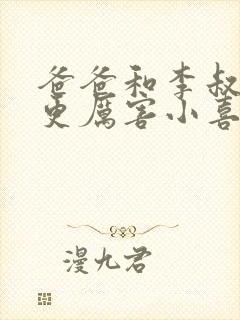 爸爸和李叔
更厲害小喜
漫九君